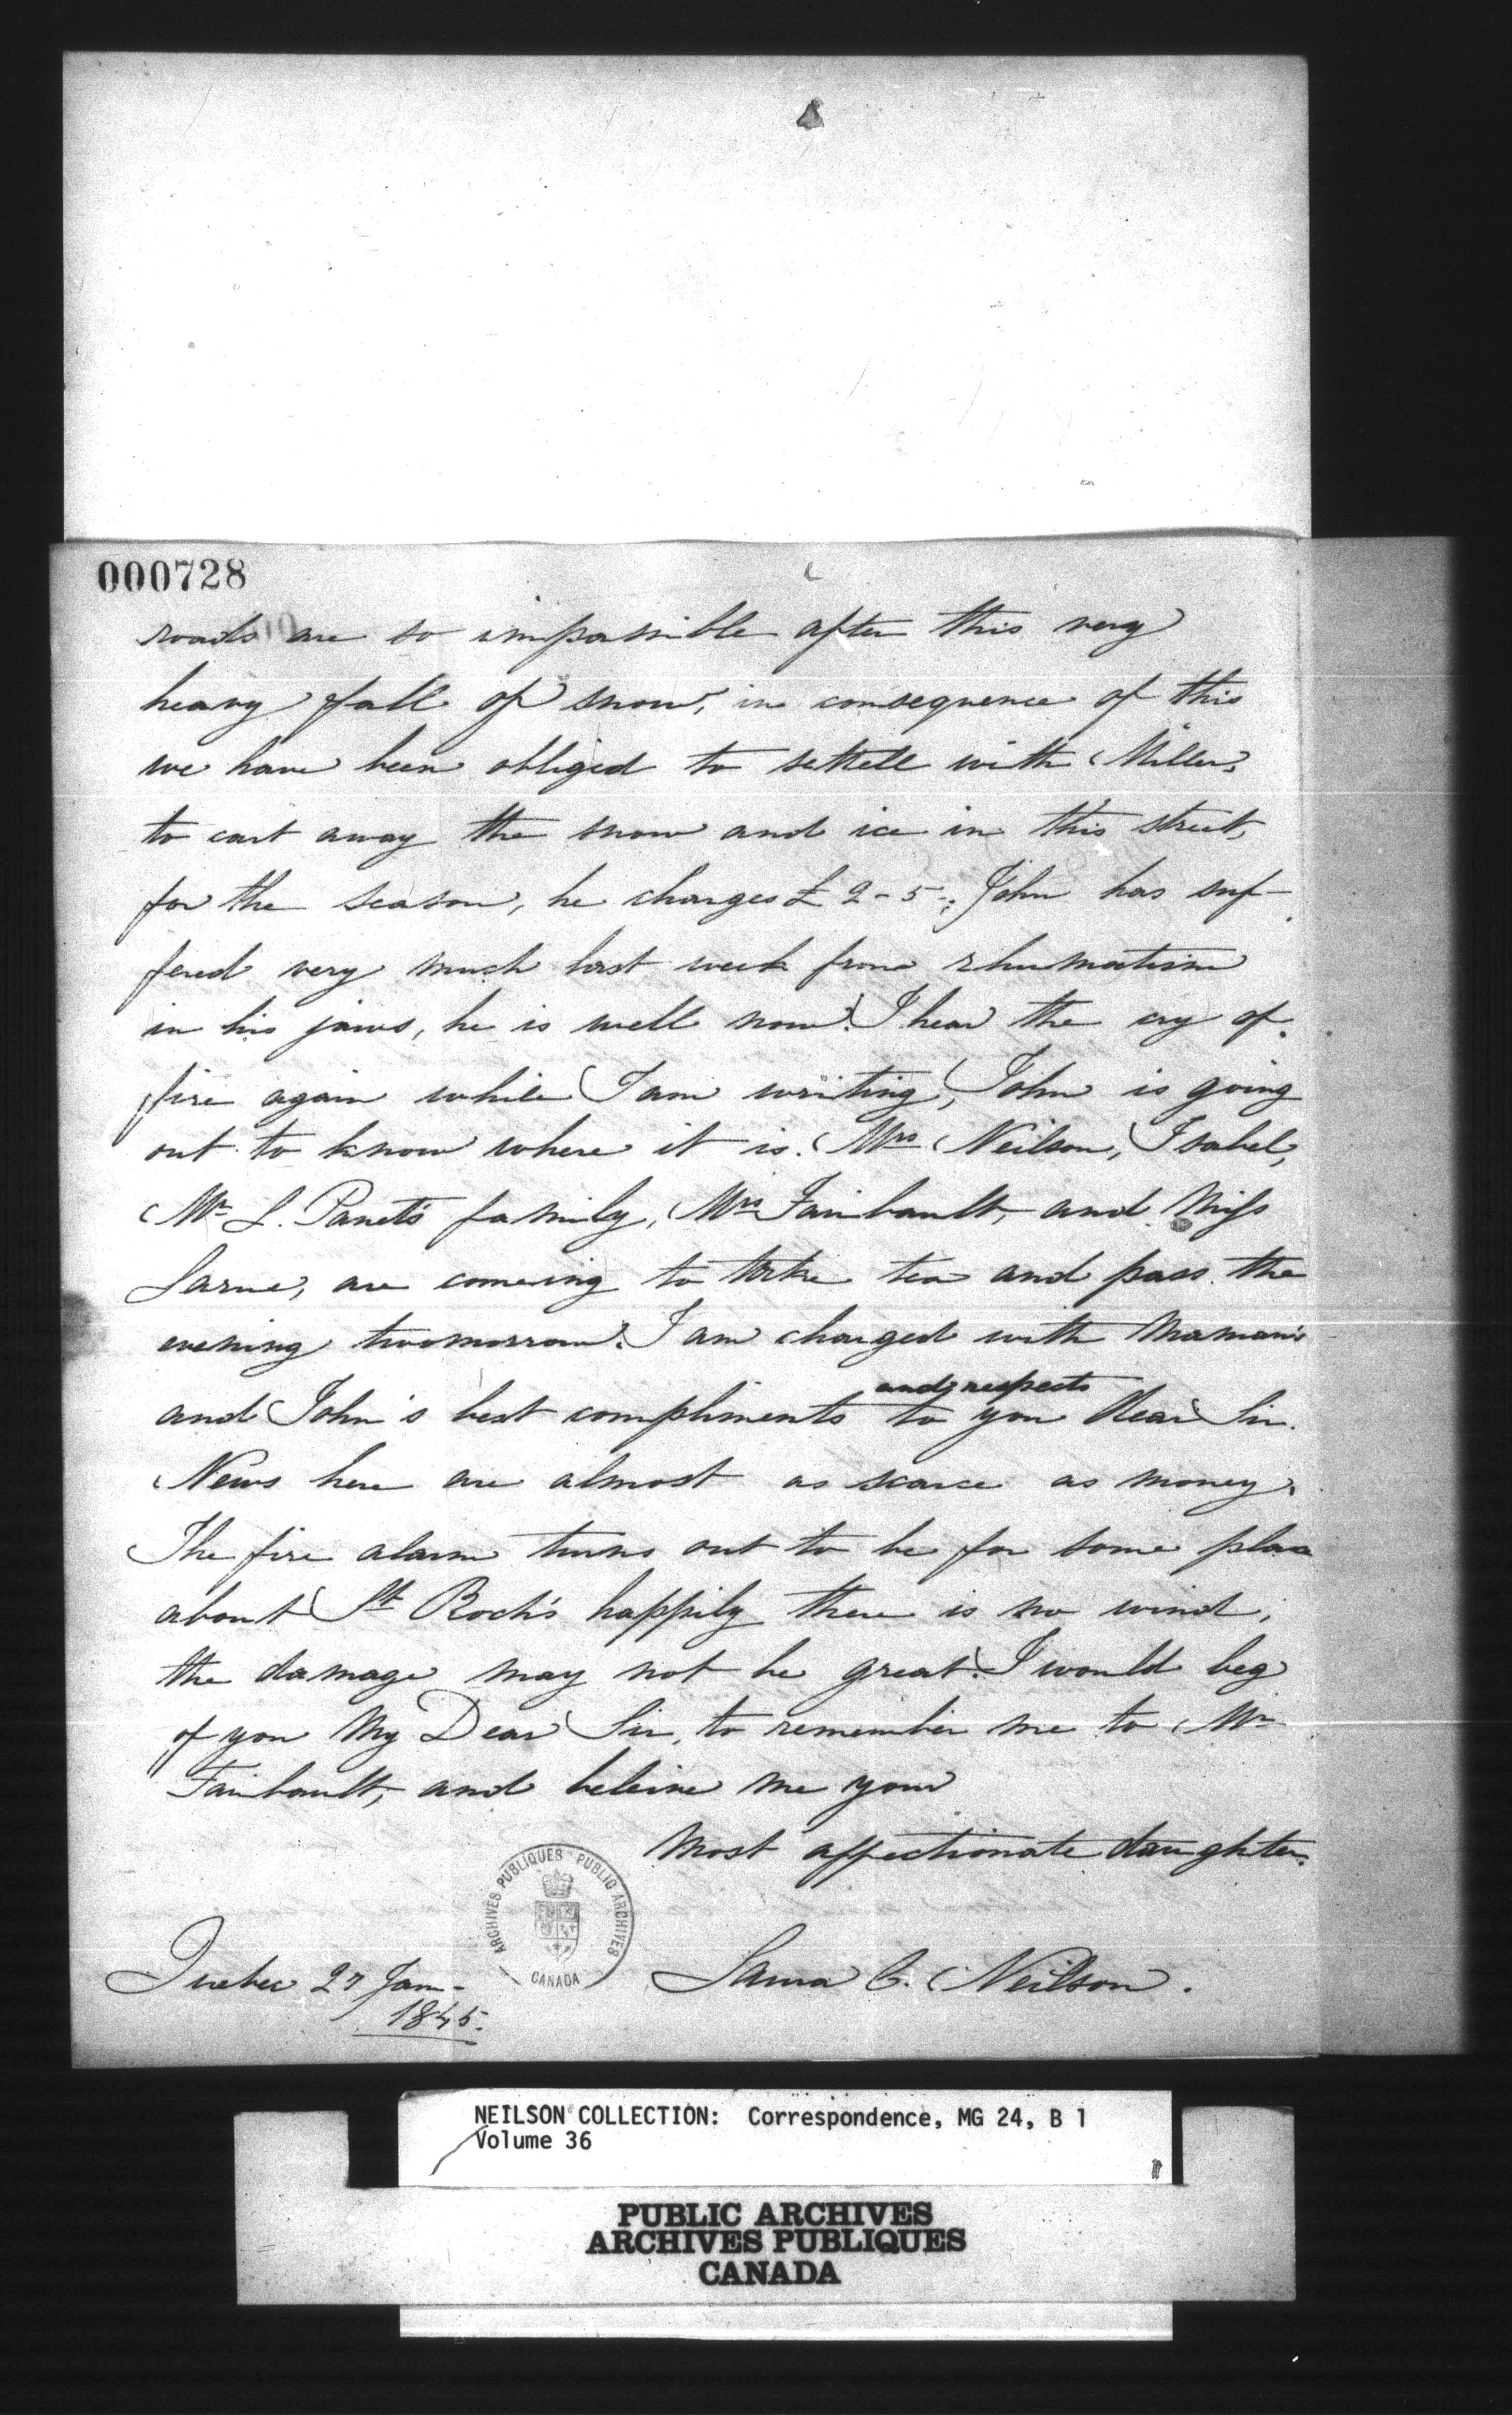 000728
roads are so impassible after this very
heavy fall of snow, in consequence of this
we have been obliged to settell with Miller,
to cart away the snow and ice in this street,
for the season, he charges £ 2-5-. John has suf-
fered very much last week from rhumatism
in his jaws, he is well now. I hear the cry of
fire again while I am writing, John is going
out to know where it is. Mrs Neilson, Isabel,
Mr L. Panet's family, Mrs Fairbault, and Miss
Larue, are comeing to take tea and pass the
evening twomorrow. I am charged with Maman's
and respects
and John's best compliments to you Dear Sir.
News here are almost as scarce as money.
The fire alarm turns out to be for some place
about St Roch's happily there is no wind,
the damage may not be great. I would beg
of you My Dear Sir, to remember me to Mr
Fairbault, and beleive me your
Most affectionate daughter.
Laura C. Neilson.
Quebec 27 Jan-
1845.
ARCHIVES PUBLIQUES PUBLIC ARCHIVES
CANADA
NEILSON COLLECTION: Correspondence, MG 24, B 1
Volume 36
PUBLIC ARCHIVES
ARCHIVES PUBLIQUES
CANADA